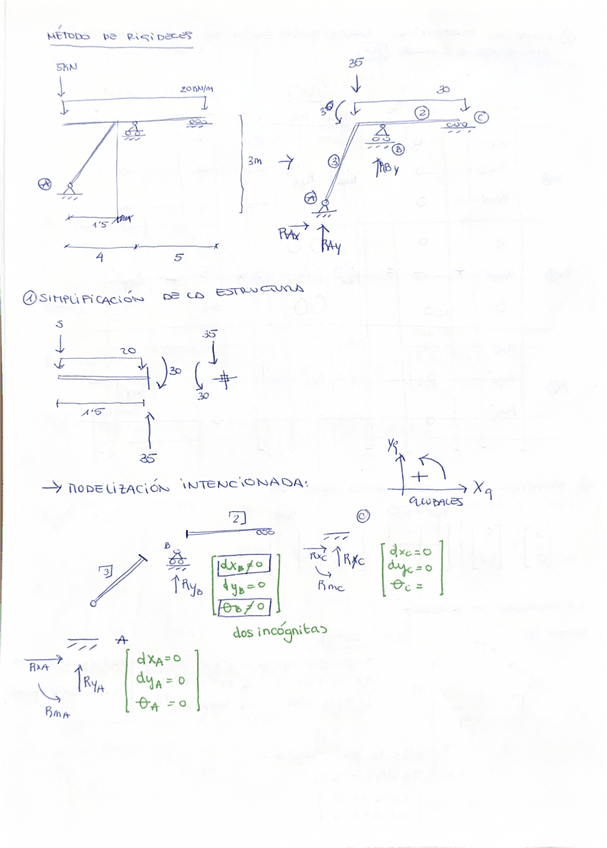 MÉTODO DE RIGIDECES
5KN
20KN/m
A
3m
1'5
4
5
35
30
30
2
C
3
B
RBy
A
RAx
RAy
① SIMPLIFICACIÓN DE LA ESTRUCTURA
5
20
30
1'5
35
35
30
→ MODELIZACIÓN INTENCIONADA:
Yg
+
Xg
GLOBALES
2]
3]
B
RyB
dxB≠0
dyB=0
θB≠0
dos incógnitas
C
RxC
RmC
dxc=0
dyc=0
θc=
A
RxA
RyA
RmA
dxA=0
dyA=0
θA=0